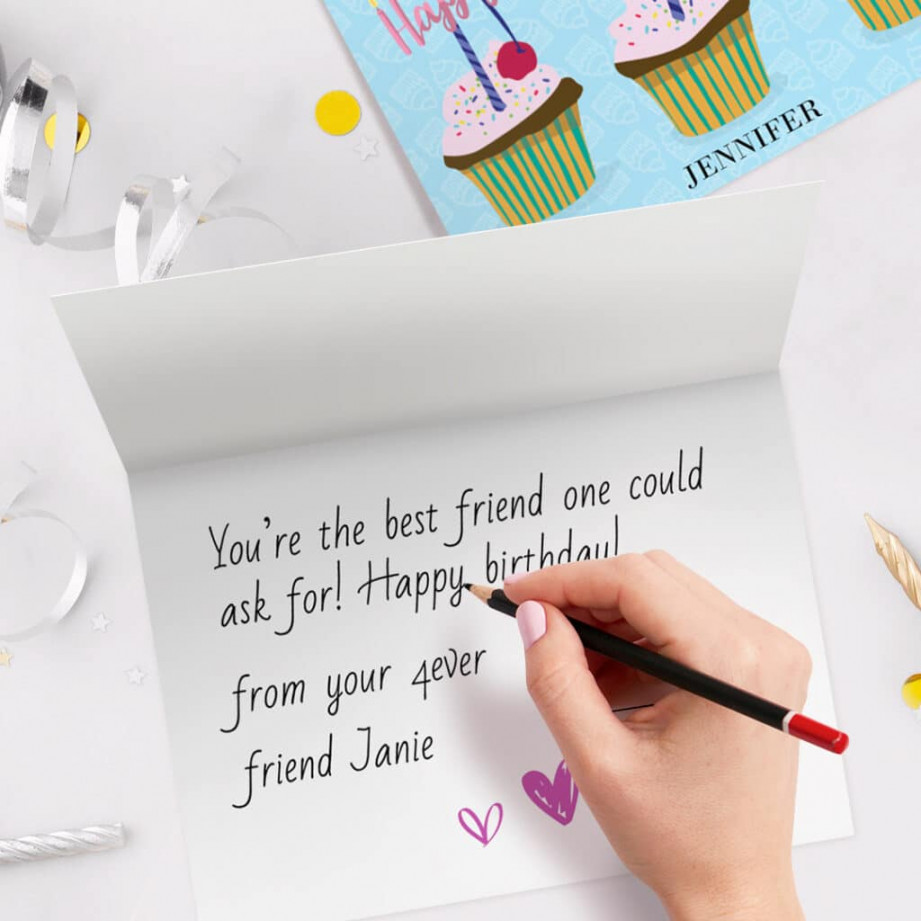 Happy
JENNIFER
You're the best friend one could
ask for! Happy birthday!
from your 4ever
friend Janie